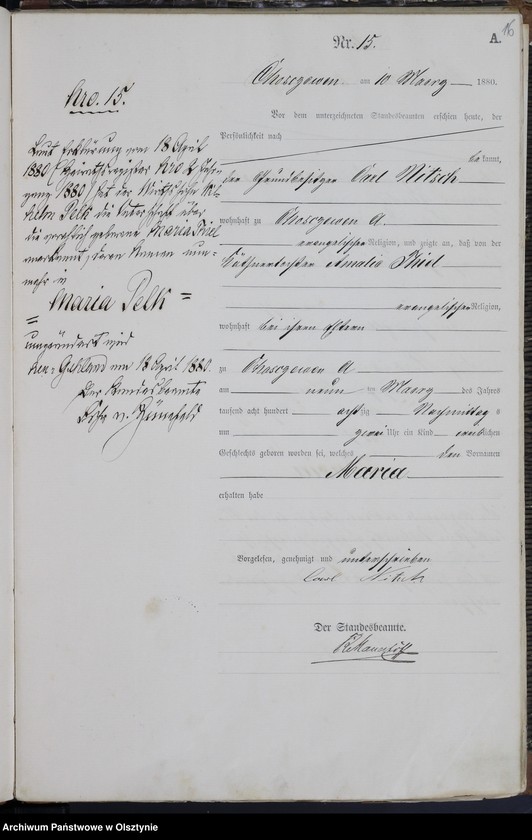 16
Nr. 15.
A.
Choszczewen am 10 Maerz 1880.
Vor dem unterzeichneten Standesbeamten erschien heute, der
Persönlichkeit nach
bekannt,
der Grundbesitzer Carl Nitsch
wohnhaft zu Choszczewen A
evangelischer Religion, und zeigte an, daß von der
Käthnertochter Amalia
evangelischer Religion,
wohnhaft bei ihren Eltern
zu Choszczewen A
am neun ten Maerz des Jahres
tausend acht hundert acht zig Nachmittag s
um zwei Uhr ein Kind weiblichen
Geschlechts geboren worden sei, welches den Vornamen
Maria
erhalten habe
Vorgelesen, genehmigt und unterschrieben
Carl Nitsch
Der Standesbeamte.
Nro. 15.
Laut Erklärung vom 13 April
1880 (Heirathsregister Nro 2
1880) hat der
Pelk die Vaterschaft über
die vorehelich geborene Maria
anerkannt, deren Namen nun-
mehr in
= Maria Pelk =
umgeändert wird
am 13 April 1880.
Der Standesbeamte
Archiwum Państwowe w Olsztynie